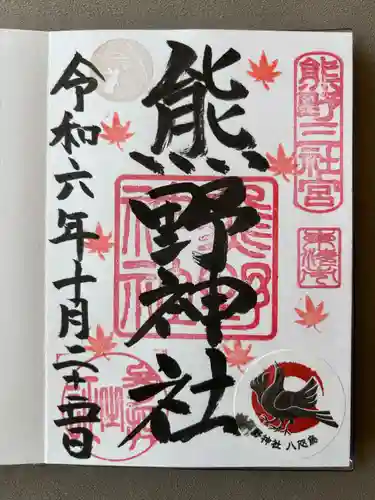 熊野三社宮
熊野神社
熊野
神社
令和六年十月二十五日
野神社 八咫烏